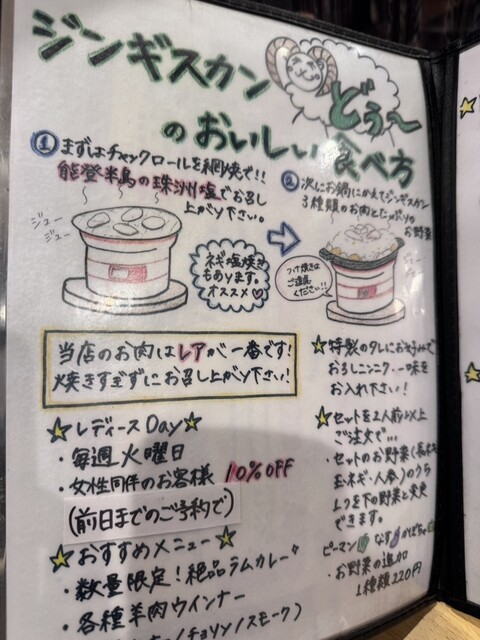 ジンギスカン
どぅ〜
のおいしい食べ方
① まずはチャックロールを網焼で!!
能登半島の珠洲塩でお召し
上がり下さい。
ジュー
ジュー
ネギ塩焼き
もあります。
オススメ♡
② 次にお鍋にかえてジンギスカン
3種類のお肉とたっぷりの
お野菜
ご遠慮
ください!!
当店のお肉はレアが一番です!
焼きすぎずにお召し上がり下さい!
☆レディースDay☆
・毎週火曜日
・女性同伴のお客様 10%OFF
(前日までのご予約で)
☆おすすめメニュー☆
・数量限定!絶品ラムカレー
・各種羊肉ウインナー
チョリソ/スモーク)
☆特製のタレにお好みで
おろしニンニク・一味を
お入れ下さい!
☆セットを2人前以上
ご注文で…
・セットのお野菜(
玉ネギ・人参)のうち
1つを下の野菜と変更
できます。
ピーマン なす かぼちゃ
・お野菜の追加
1種類220円